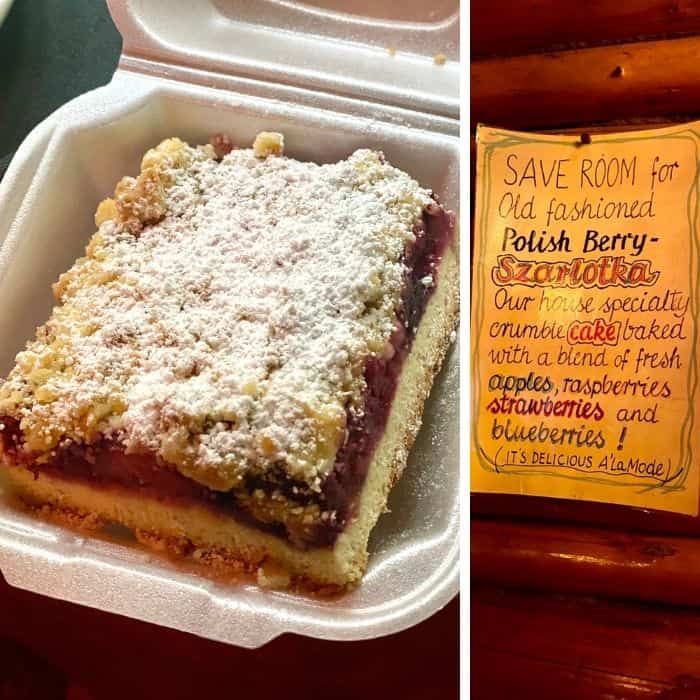 SAVE ROOM for
Old fashioned
Polish Berry-
Szarlotka
Our house specialty
crumble cake baked
with a blend of fresh
apples, raspberries
strawberries and
blueberries !
(IT'S DELICIOUS A'LaMode)